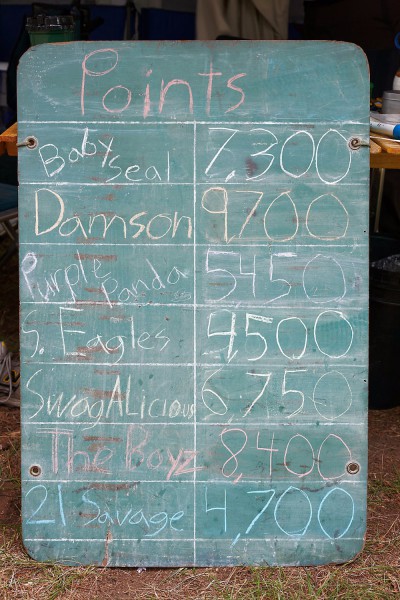 Points
Baby Seal 7,300
Damson 9700
Purple Panda 5450
S. Eagles 4,500
SwagALicious 6,750
The Boyz 8,400
21 Savage 4,700